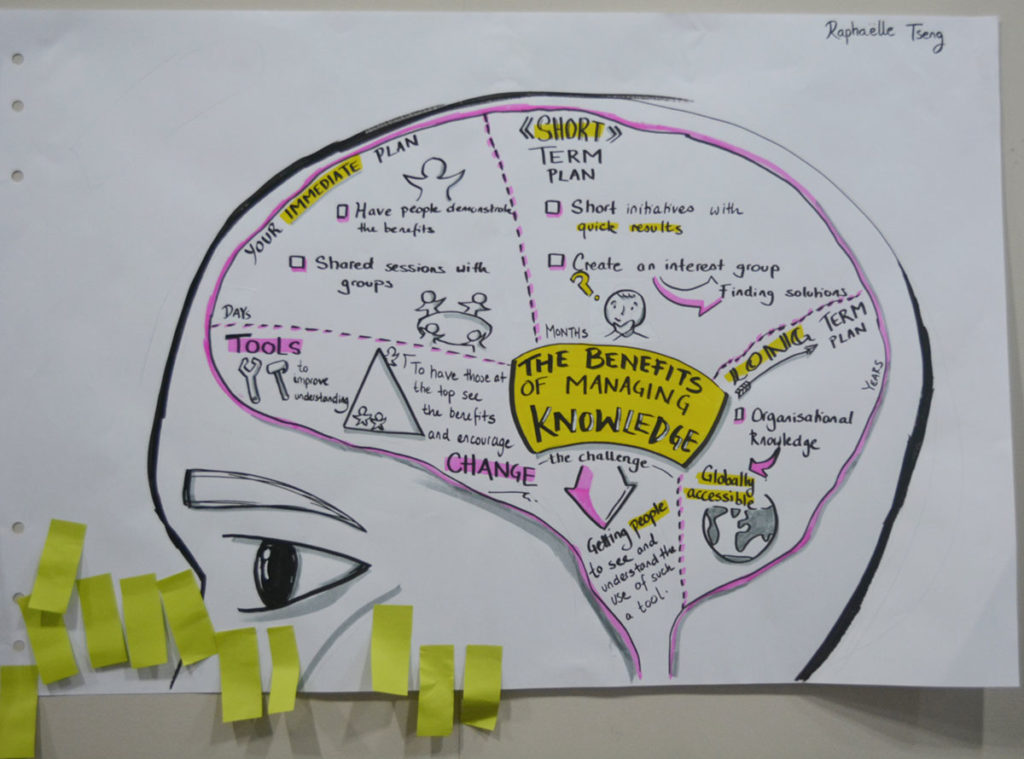 Raphaëlle Tseng
YOUR IMMEDIATE PLAN
Have people demonstrate
the benefits
Shared sessions with
groups
DAYS
《SHORT》
TERM
PLAN
Short initiatives with
quick results
Create an interest group
?
Finding solutions
MONTHS
THE BENEFITS
OF MANAGING
KNOWLEDGE
LONG TERM
PLAN
YEARS
Organisational
Knowledge
Globally
accessible
TOOLS
to
improve
understanding
To have those at
the top see
the benefits
and encourage
CHANGE
the challenge
Getting people
to see and
understand the
use of such
a tool.